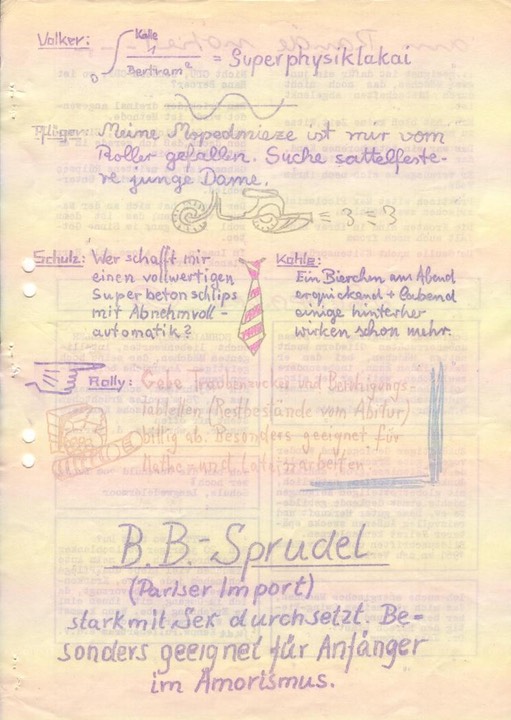 Volker: ∫ Kalle
1
Bertram² = Superphysiklakai
0
Pflüger: Meine Mopedmieze ist mir vom
Roller gefallen. Suche sattelfeste-
re junge Dame.
Schulz: Wer schafft mir
einen vollwertigen
Superbetonschlips
mit Abnehmvoll-
automatik?
Kohls:
Ein Bierchen am Abend
erquickend + labend
einige hinterher
wirken schon mehr.
Rolly: Gebe Traubenzucker und Beruhigungs-
tabletten (Restbestände vom Abitur)
billig ab. Besonders geeignet für
Mathe- und Lateinarbeiten
B.B.-Sprudel
(Pariser Import)
stark mit Sex durchsetzt. Be-
sonders geeignet für Anfänger
im Amorismus.